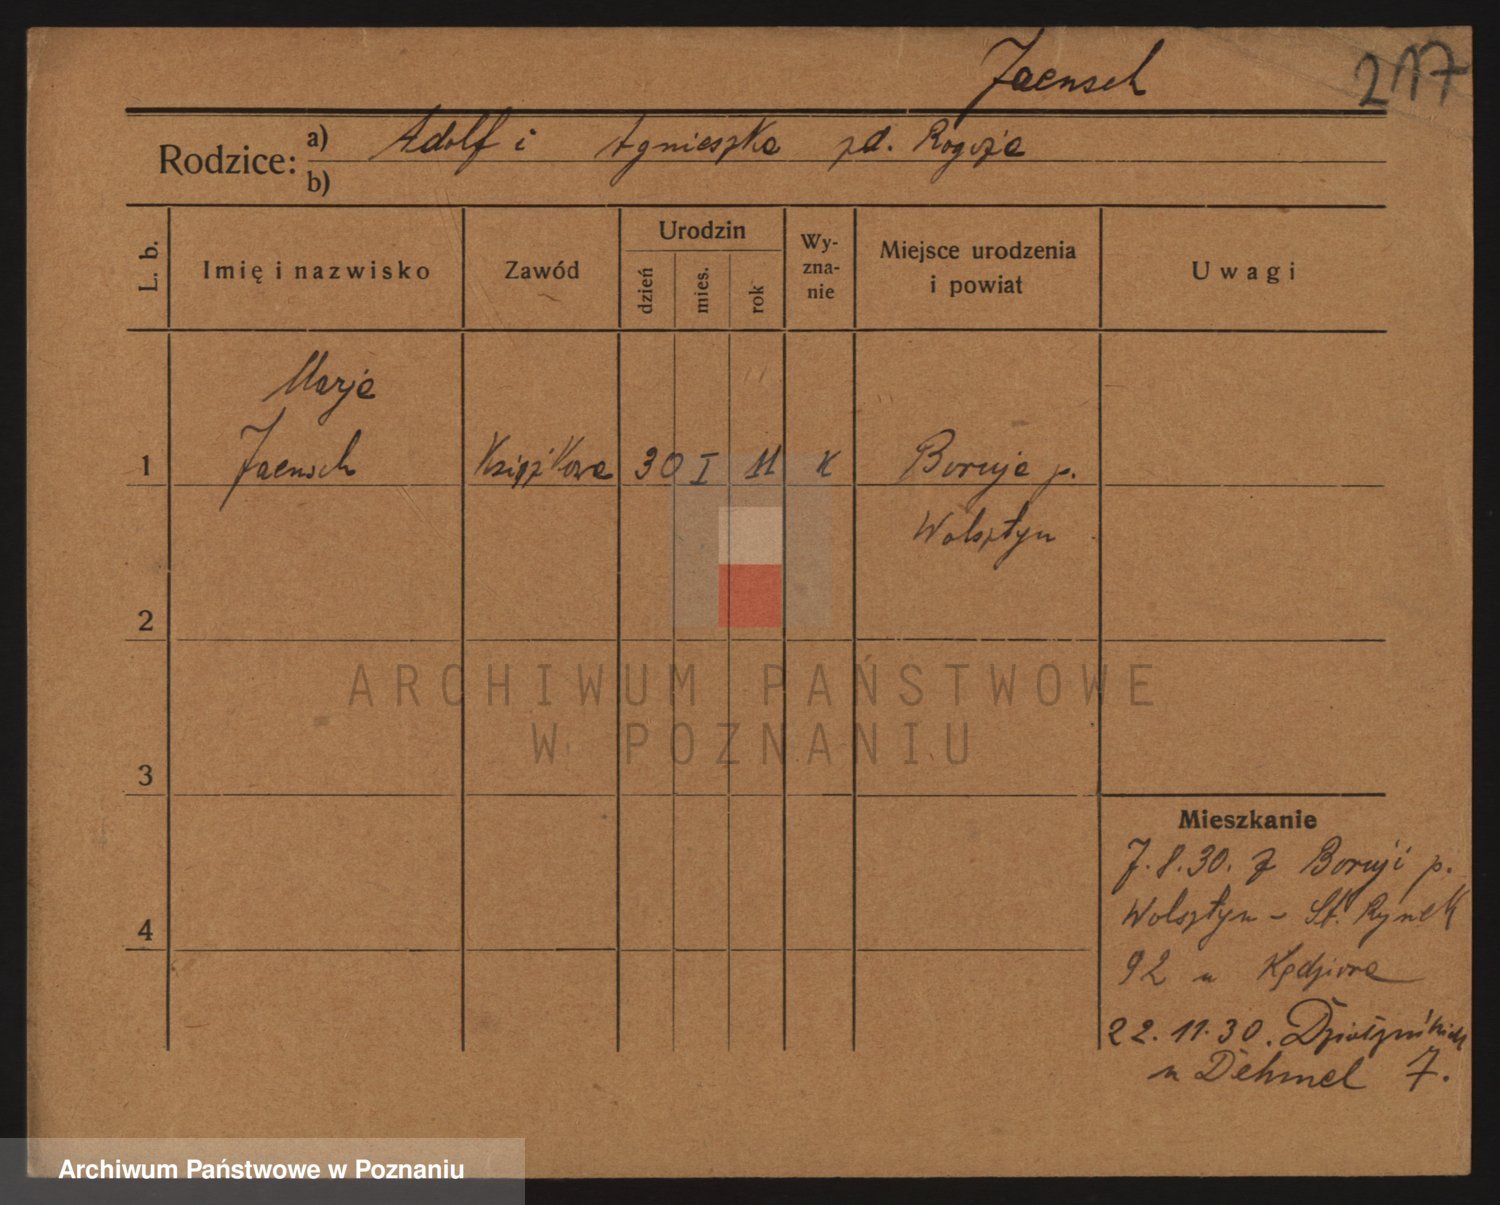 Jaensch
217
Rodzice:
a) Adolf i Agnieszka zd. Rogoża
b)
L. b.
Imię i nazwisko
Zawód
Urodzin
dzień
mies.
rok
Wy-
zna-
nie
Miejsce urodzenia
i powiat
Uwagi
Marja
1 Jaensch Książkowa 30 I 11 K Boruja p.
Wolsztyn
2
3
4
Mieszkanie
7.8.30. z Boruji p.
Wolsztyn - St. Rynek
92 u
22.11.30.
u Dehmel 7.
ARCHIWUM PAŃSTWOWE
W POZNANIU
Archiwum Państwowe w Poznaniu